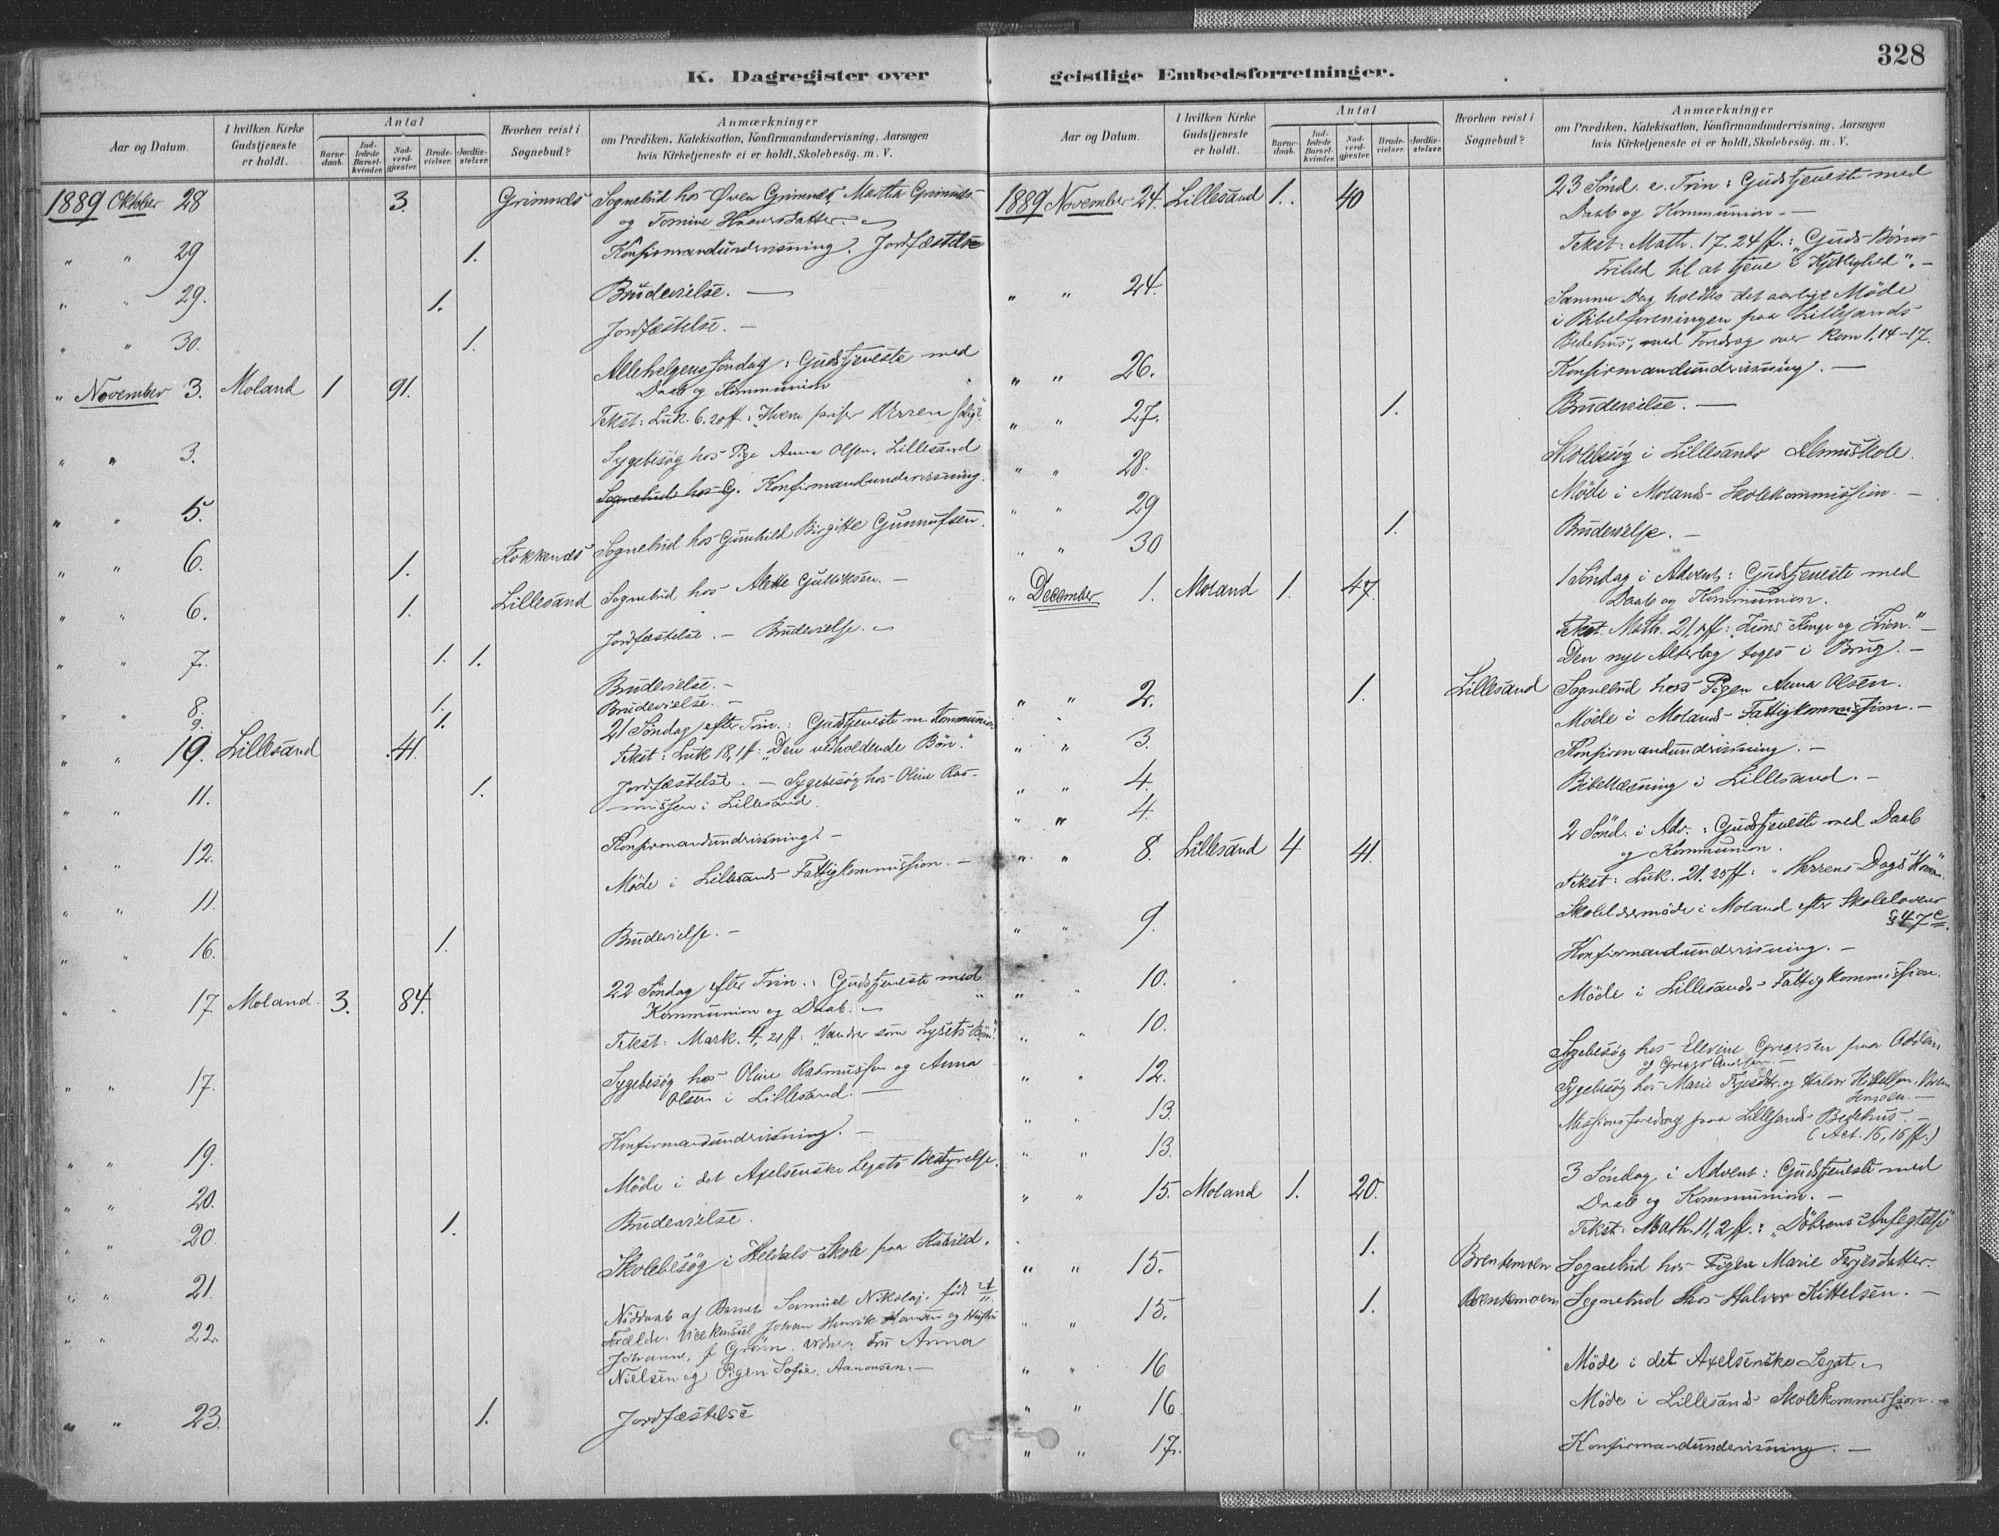 328
K. Dagregister over geistlige Embedsforretninger.
Aar og Datum.
I hvilken Kirke Gudstjeneste er holdt.
Antal
Barnedaab.
Indledede Barselkvinder.
Nadverdgjester.
Brudevielser.
Jordfæstelser.
Hvorhen reist i Sognebud?
Anmærkninger
om Prædiken, Katekisation, Konfirmandundervisning, Aarsagen
hvis Kirketjeneste ei er holdt, Skolebesøg. m. V.
1889 Oktober 28 3. Grimnes Sognebud hos Øven Grimnes, Martha Grimnes
og Tomine Halvorsdatter.
" " 29 1. Konfirmandundervisning. Jordfæstelse
" " 29. 1. Brudevielse. —
" " 30. 1. Jordfæstelse. —
" November 3. Moland 1 91. Allehelgenssøndag: Gudstjeneste med
Daab og Kommunion
Tekst: Luk. 6. 20 ff.: "Hvem priser Herren salig?"
" " 3. Sygebesøg hos Pige Anna Olsen, Lillesand
" " 5. Sognebud hos G. Konfirmandundervisning.
" " 6. 1. Kokkenes Sognebud hos Gunhild Birgitte Gunnufsen.
" " 6. 1. Lillesand Sognebud hos Alette Gulliksen. —
" " 7. 1. 1. Jordfæstelse. — Brudevielse. —
" " 8. 1. Brudevielse. —
9. 1. Brudevielse. —
" " 19. Lillesand 41. 21 Søndag efter Trin.: Gudstjeneste m. Kommunion
Tekst: Luk 18, 1 ff: "Den vedholdende Bøn."
" " 11. 1. Jordfæstelse. — Sygebesøg hos Oline Ras-
mussen i Lillesand.
" " 12. Konfirmandundervisning. —
" " 11. Møde i Lillesands Fattigkommission. —
" " 16. 1. Brudevielse. —
" " 17 Moland. 3. 84. 22 Søndag efter Trin.: Gudstjeneste med
Kommunion og Daab. —
Tekst: Mark. 4, 21 ff: "Vandrer som Lysets Børn."
" " 17. Sygebesøg hos Oline Rasmussen og Anna
Olsen i Lillesand. —
" " 19. Konfirmandundervisning. —
" " 20. Møde i det Axelsenske Legats Bestyrelse.
" " 20 1. Brudevielse.
" " 21. Skolebesøg i Heldals Skole paa
" " 22. Nøddaab af Barnet Samuel Nikolaj, født
Forældre: Vicekonsul Johan Henrik Hansen og Hustru
Johanne, f. Grønn. Vidner: Fru Anna
Nielsen og Pigen Sofie Aanonsen. —
" " 23. 1. Jordfæstelse
Aar og Datum.
I hvilken Kirke Gudstjeneste er holdt.
Antal
Barnedaab.
Indledede Barselkvinder.
Nadverdgjester.
Brudevielser.
Jordfæstelser.
Hvorhen reist i Sognebud?
Anmærkninger
om Prædiken, Katekisation, Konfirmandundervisning, Aarsagen
hvis Kirketjeneste ei er holdt, Skolebesøg. m. V.
1889 November 24. Lillesand 1. 40 23 Sønd. e. Trin: Gudstjeneste med
Daab og Kommunion. —
Tekst: Math. 17. 24 ff.: "Guds Børns
Frihed til at tjene i Kjærlighed". —
" " 24. Samme Dag holdtes det aarlige Møde
i Bibelforeningen paa Lillesands
Bedehus, med Foredrag over Rom 1, 14-17.
" " 26. Konfirmandundervisning. —
" " 27. 1. Brudevielse. —
" " 28. Skolebesøg i Lillesands Almueskole.
" " 29 Møde i Molands Skolekommission. —
" " 30 1. Brudevielse. —
" December 1. Moland 1. 47. 1 Søndag i Advent: Gudstjeneste med
Daab og Kommunion.
Tekst: Math. 21, 1 ff: "Zions Konge og Zion." —
Den nye Alterbog toges i Brug. —
" " 2. 1. Lillesand Sognebud hos Pigen Anna Olsen.
" " 3. Møde i Molands Fattigkommission. —
" " 4. Konfirmandundervisning. —
" " 4. Bibellæsning i Lillesand. —
" " 8. Lillesand 4 41. 2 Sønd. i Adv.: Gudstjeneste med Daab
og Kommunion.
Tekst: Luk. 21. 25 ff: "Herrens Dags Komme".
" " 9. i Moland efter Skolelovens
§ 47 c.
" " 10. Konfirmandundervisning. —
" " 10. Møde i Lillesands Fattigkommission.
" " 12. Sygebesøg hos Elevine Gregersen paa
og
" " 13. Sygebesøg hos Marie Terjesdtr. og Halvor Kittelsen,
" " 13. Missionsforedrag paa Lillesands Bedehus. —
(Act. 16, 16 ff.)
" " 15. Moland 1. 20. 3 Søndag i Advent: Gudstjeneste med
Daab og Kommunion. —
Tekst: Math. 11, 2 ff.: "Døberens Anfegtelse"
" " 15. 1. Brentemoen Sognebud hos Pigen Marie Terjesdatter.
" " 15. 1. Brentemoen Sognebud hos Halvor Kittelsen. —
" " 16 Møde i det Axelsenske Legat. —
" " 16. Møde i Lillesands Skolekommission. —
" " 17. Konfirmandundervisning. —